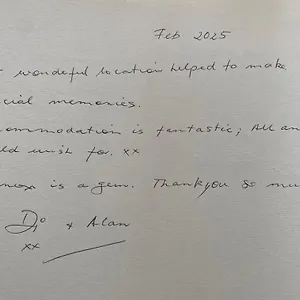 Feb 2025
wonderful location helped to make
cial memories.
ommodation is fantastic; All an
ld wish for. xx
is a gem. Thankyou so mu
Di x Alan
xx